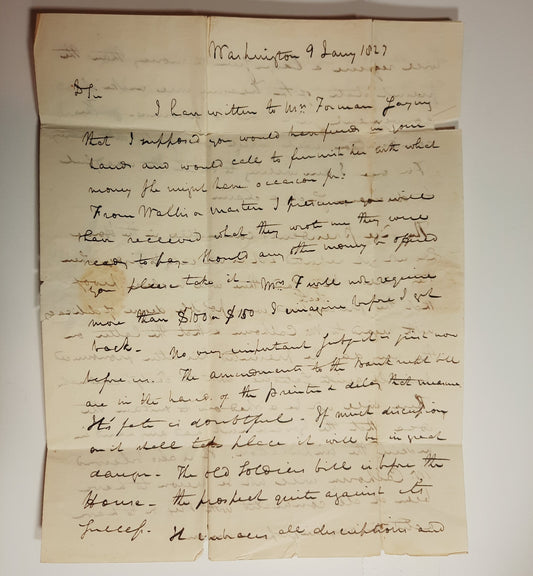 Washington 9 Jany 1827
D Sir
I have written to Mrs Forman saying
that I supposed you would have funds in your
hands and would call to furnish her with what
money she might have occasion for.
From Wallis or Masten I presume you will
have received what they wrote me they were
ready to pay. Should any other money be offered
you please take it. Mrs F will not require
more than $100 or $150 I imagine before I get
back. No very important subject is just now
before us. The amendments to the Bankrupt bill
are in the hands of the printer a delay that means
Its fate is doubtful. If much discussion
on it shall take place it will be in great
danger. The old Soldiers bill is before the
House. the prospect quite against its
success. It embraces all descriptions and